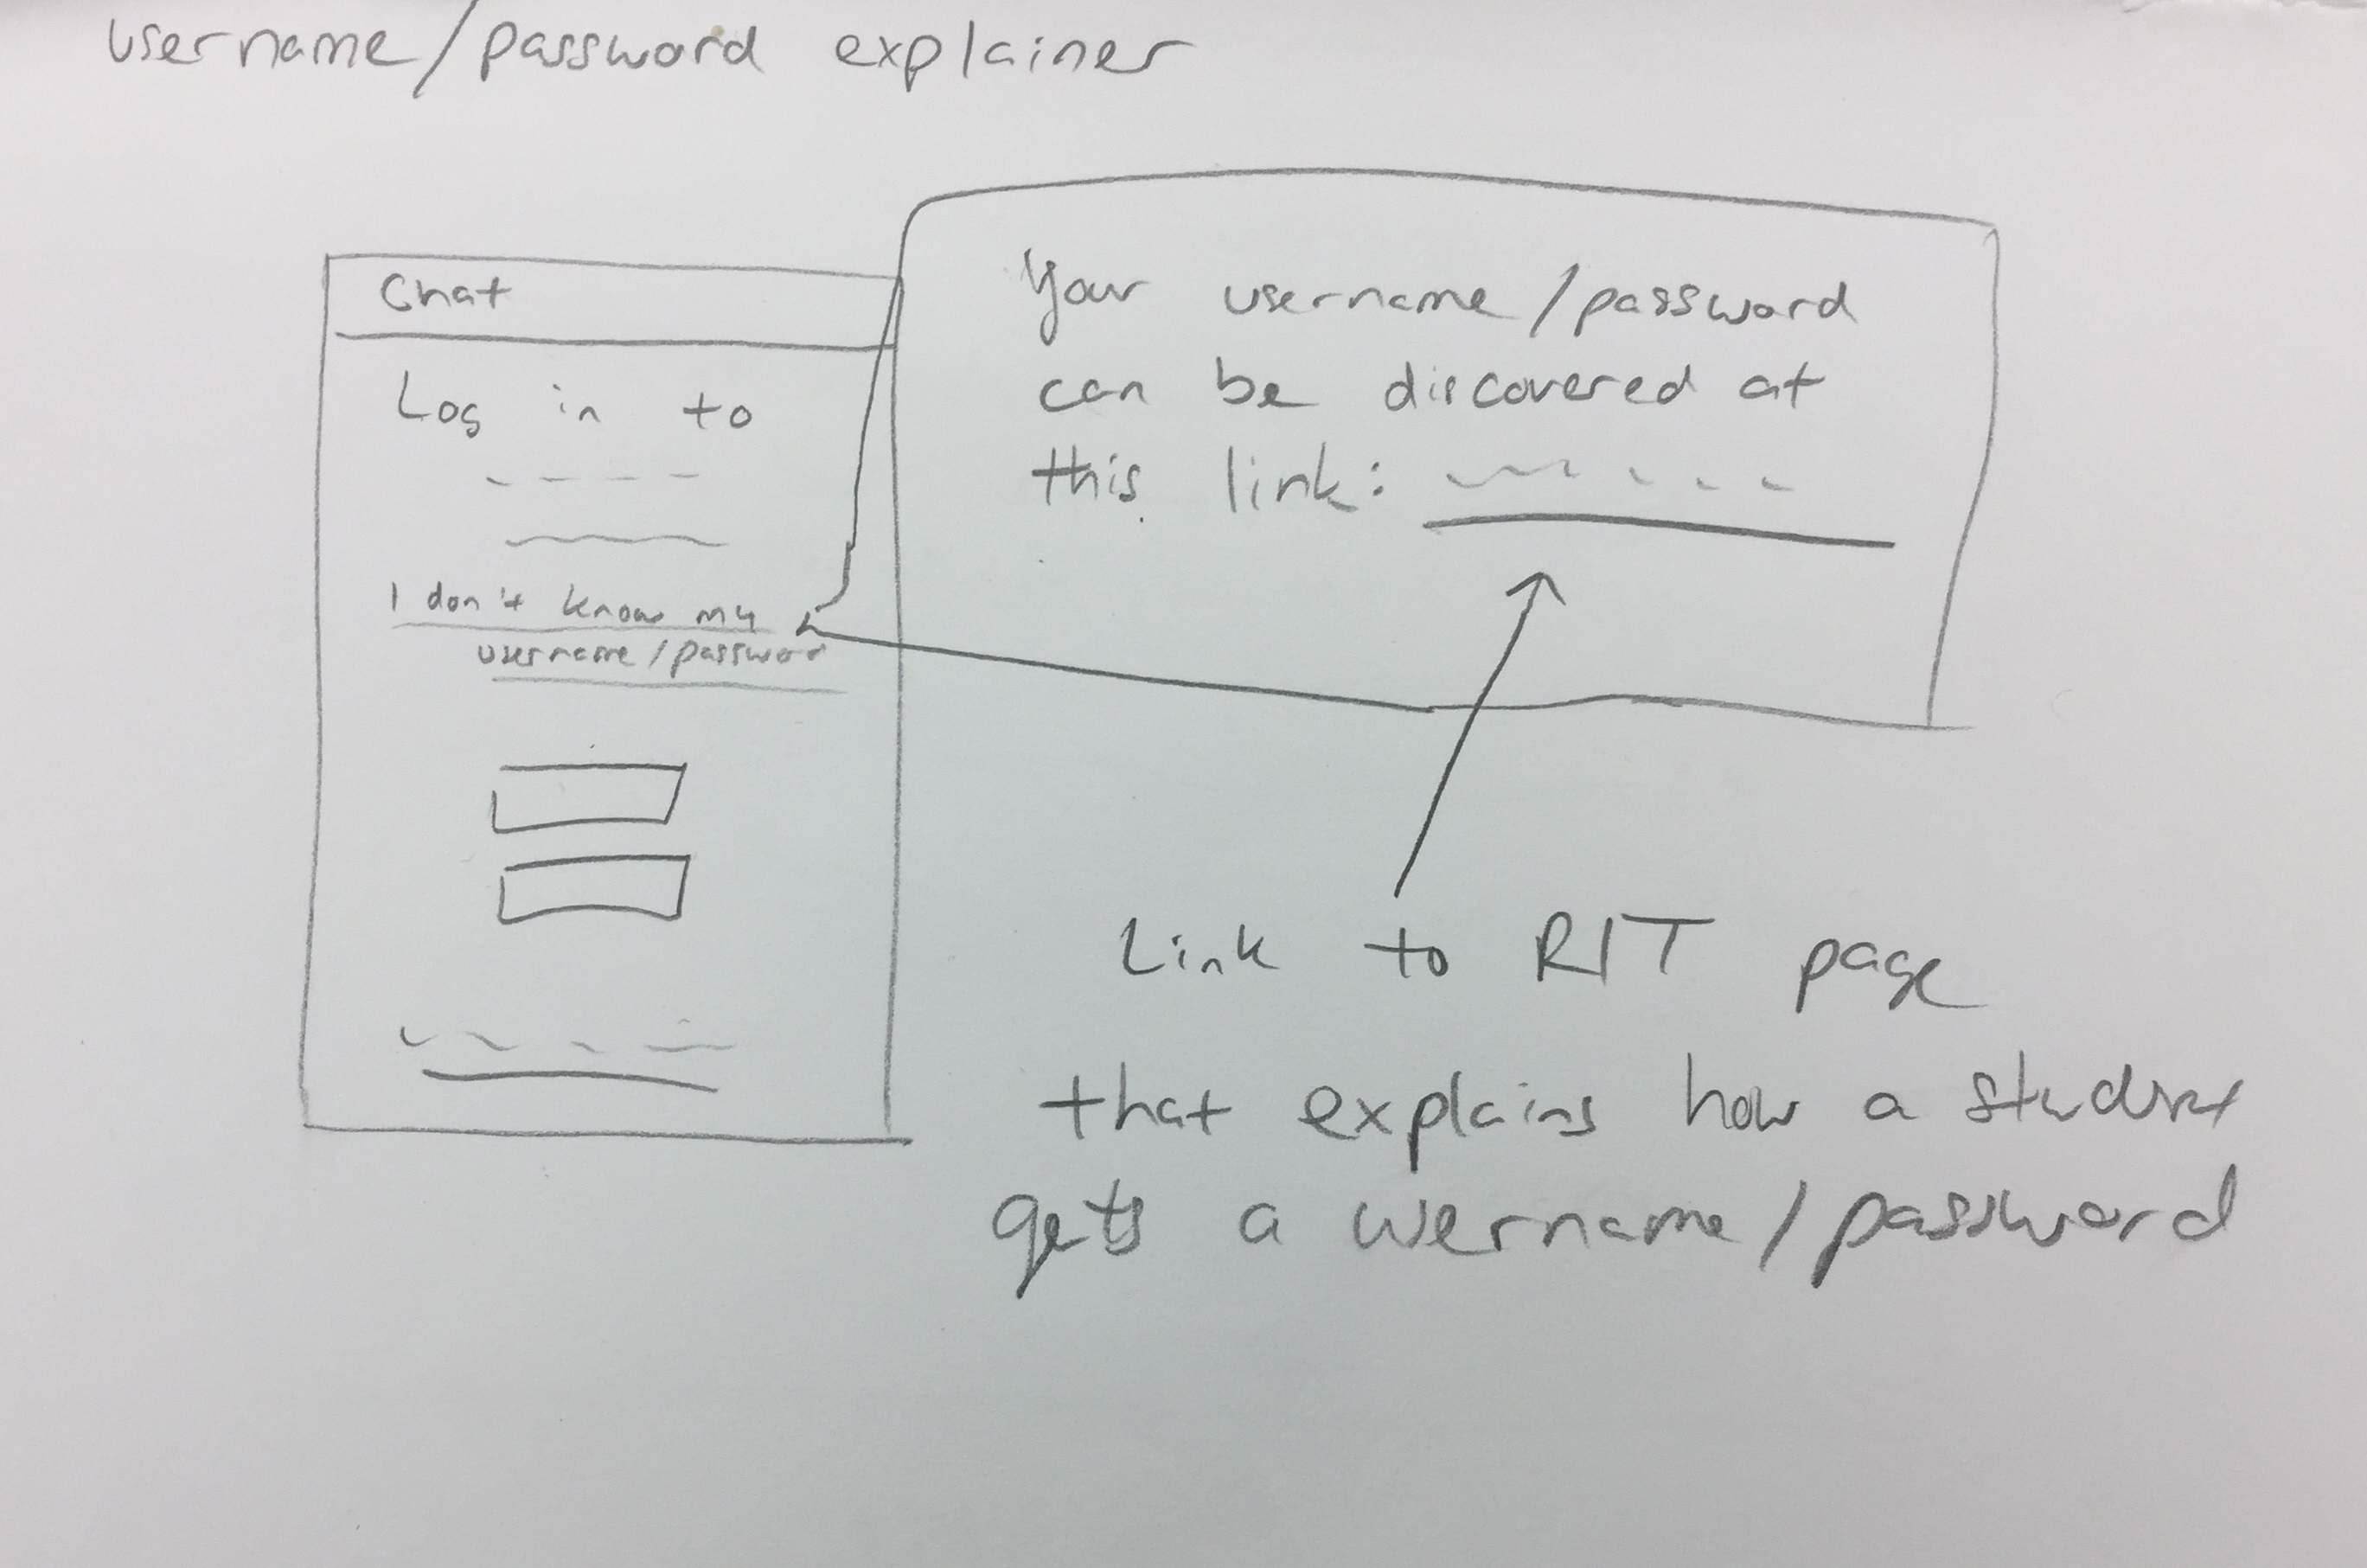 username/password explainer
Chat
Log in to
I don't know my
username/password
Your username/password
can be discovered at
this link:
Link to RIT page
that explains how a student
gets a username/password